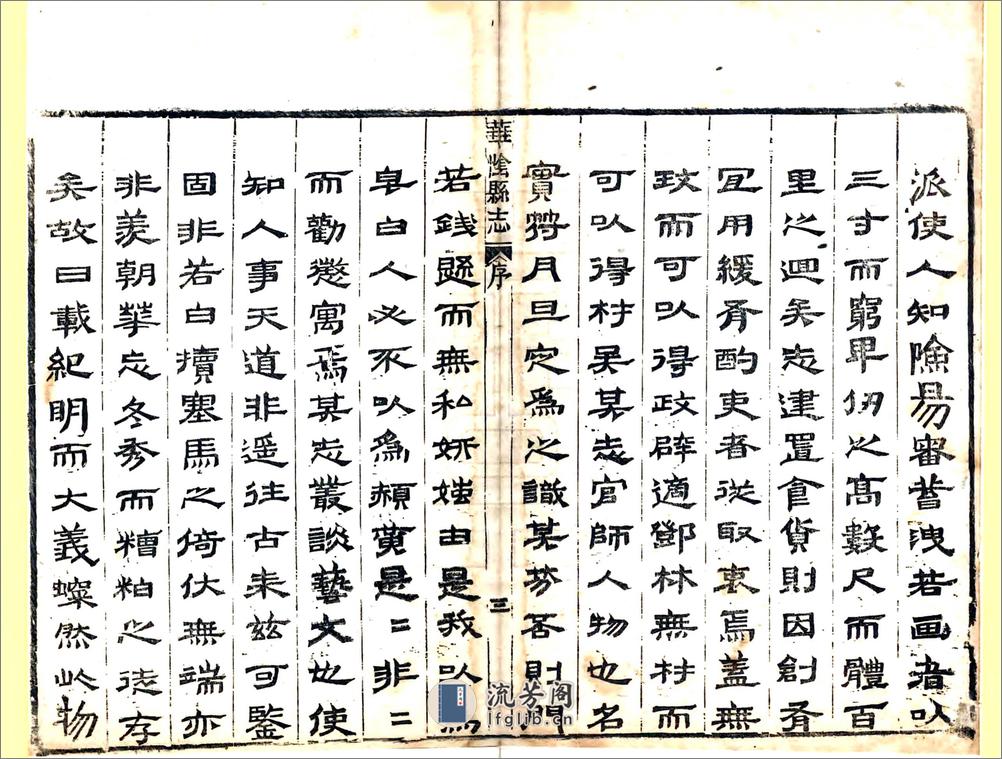 派使人知險易審蓄洩若画者以
三寸而窮畢仞之高數尺而體百
里之迴矣志建置食貨則因創有
宜用緩有酌吏者從取衷焉蓋無
政而可以得政辟適鄧林無材而
可以得材吴其志官師人物也名
實符月旦定爲之識其芬苔則
華陰縣志 序 三
若錢懸而無私妍媸由是我以
皁白人必不以爲頗黄是〻非〻
而勸懲寓焉其志叢談藝文也使
知人事天道非遥往古来兹可鑒
固非若白犢塞馬之倚伏無端亦
非羡朝華忘冬秀而糟粕之徒存
矣故曰載紀明而大義燦然此物
流芳阁
lfglib.cn